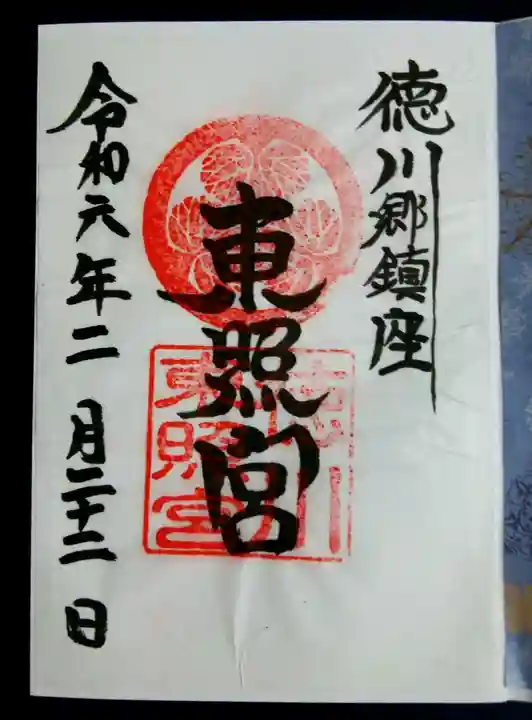 徳川郷鎮座
東照宮
徳川
東照宮
令和六年二月二十二日